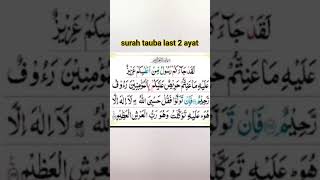 surah tauba last 2 ayat
لَقَدْ جَآءَكُمْ رَسُوْلٌ مِّنْ اَنْفُسِكُمْ عَزِيْزٌ
عَلَيْهِ مَا عَنِتُّمْ حَرِيْصٌ عَلَيْكُمْ بِالْمُؤْمِنِيْنَ رَءُوْفٌ
رَّحِيْمٌ فَاِنْ تَوَلَّوْا فَقُلْ حَسْبِيَ اللّٰهُ لَاۤ اِلٰهَ اِلَّا
هُوَ عَلَيْهِ تَوَكَّلْتُ وَهُوَ رَبُّ الْعَرْشِ الْعَظِيْمِ